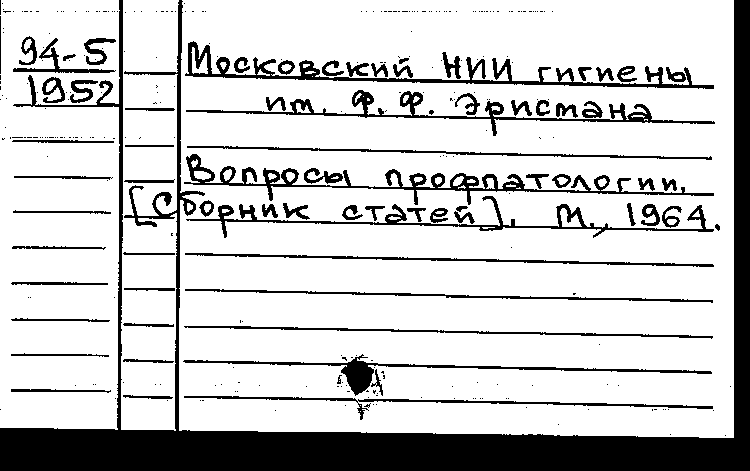 94-5
1952
Московский НИИ гигиены
им. Ф. Ф. Эристана
Вопросы профпатологии.
[Сборник статей]. М., 1964.